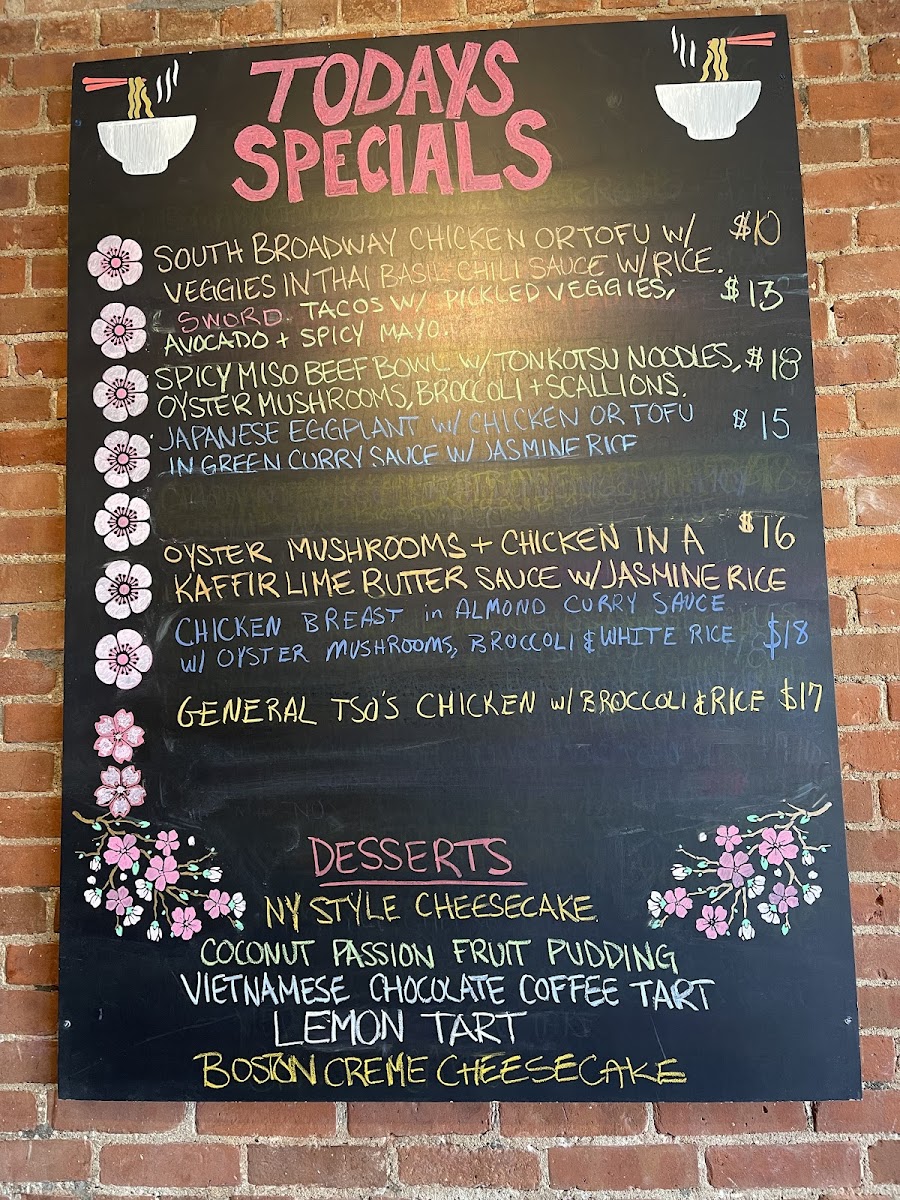 TODAYS
SPECIALS
SOUTH BROADWAY CHICKEN OR TOFU W/ $10
VEGGIES IN THAI BASIL CHILI SAUCE W/ RICE.
SWORD TACOS W/ PICKLED VEGGIES, $13
AVOCADO + SPICY MAYO.
SPICY MISO BEEF BOWL W/ TONKOTSU NOODLES, $18
OYSTER MUSHROOMS, BROCCOLI + SCALLIONS.
JAPANESE EGGPLANT W/ CHICKEN OR TOFU $15
IN GREEN CURRY SAUCE W/ JASMINE RICE
OYSTER MUSHROOMS + CHICKEN IN A $16
KAFFIR LIME BUTTER SAUCE W/ JASMINE RICE
CHICKEN BREAST in ALMOND CURRY SAUCE
W/ OYSTER MUSHROOMS, BROCCOLI & WHITE RICE $18
GENERAL TSO'S CHICKEN W/ BROCCOLI & RICE $17
DESSERTS
NY STYLE CHEESECAKE
COCONUT PASSION FRUIT PUDDING
VIETNAMESE CHOCOLATE COFFEE TART
LEMON TART
BOSTON CREME CHEESECAKE